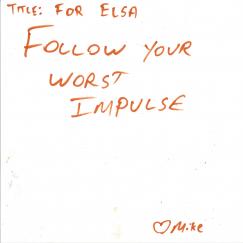 TITLE: FOR ELSA
FOLLOW YOUR
WORST
IMPULSE
♡Mike